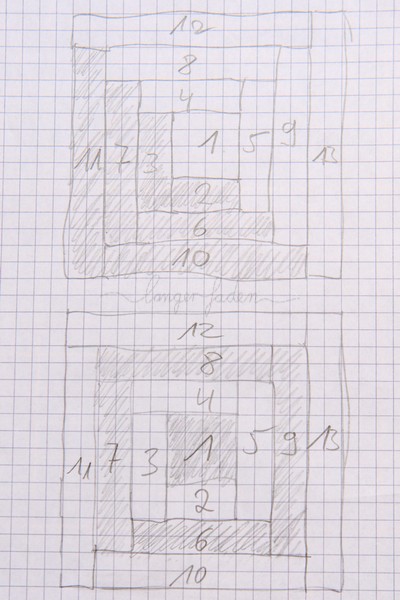 12
8
4
11 7 3 1 5 9 13
2
6
10
langerfaden
12
8
4
11 7 3 1 5 9 13
2
6
10